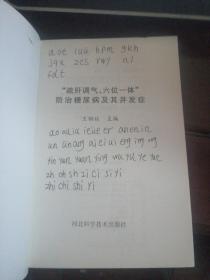 aoe iuü bpm gkh
jqx zcs rwy nl
fdt
“疏肝调气、六位一体”
防治糖尿病及其并发症
主编
ao ou iu ie üe er an en in
un ün ang ai ei ui eng ing ong
yin yun yuan ying wu yu ye yue
zh ch sh zi ci si yi
zhi chi shi yi
河北科学技术出版社